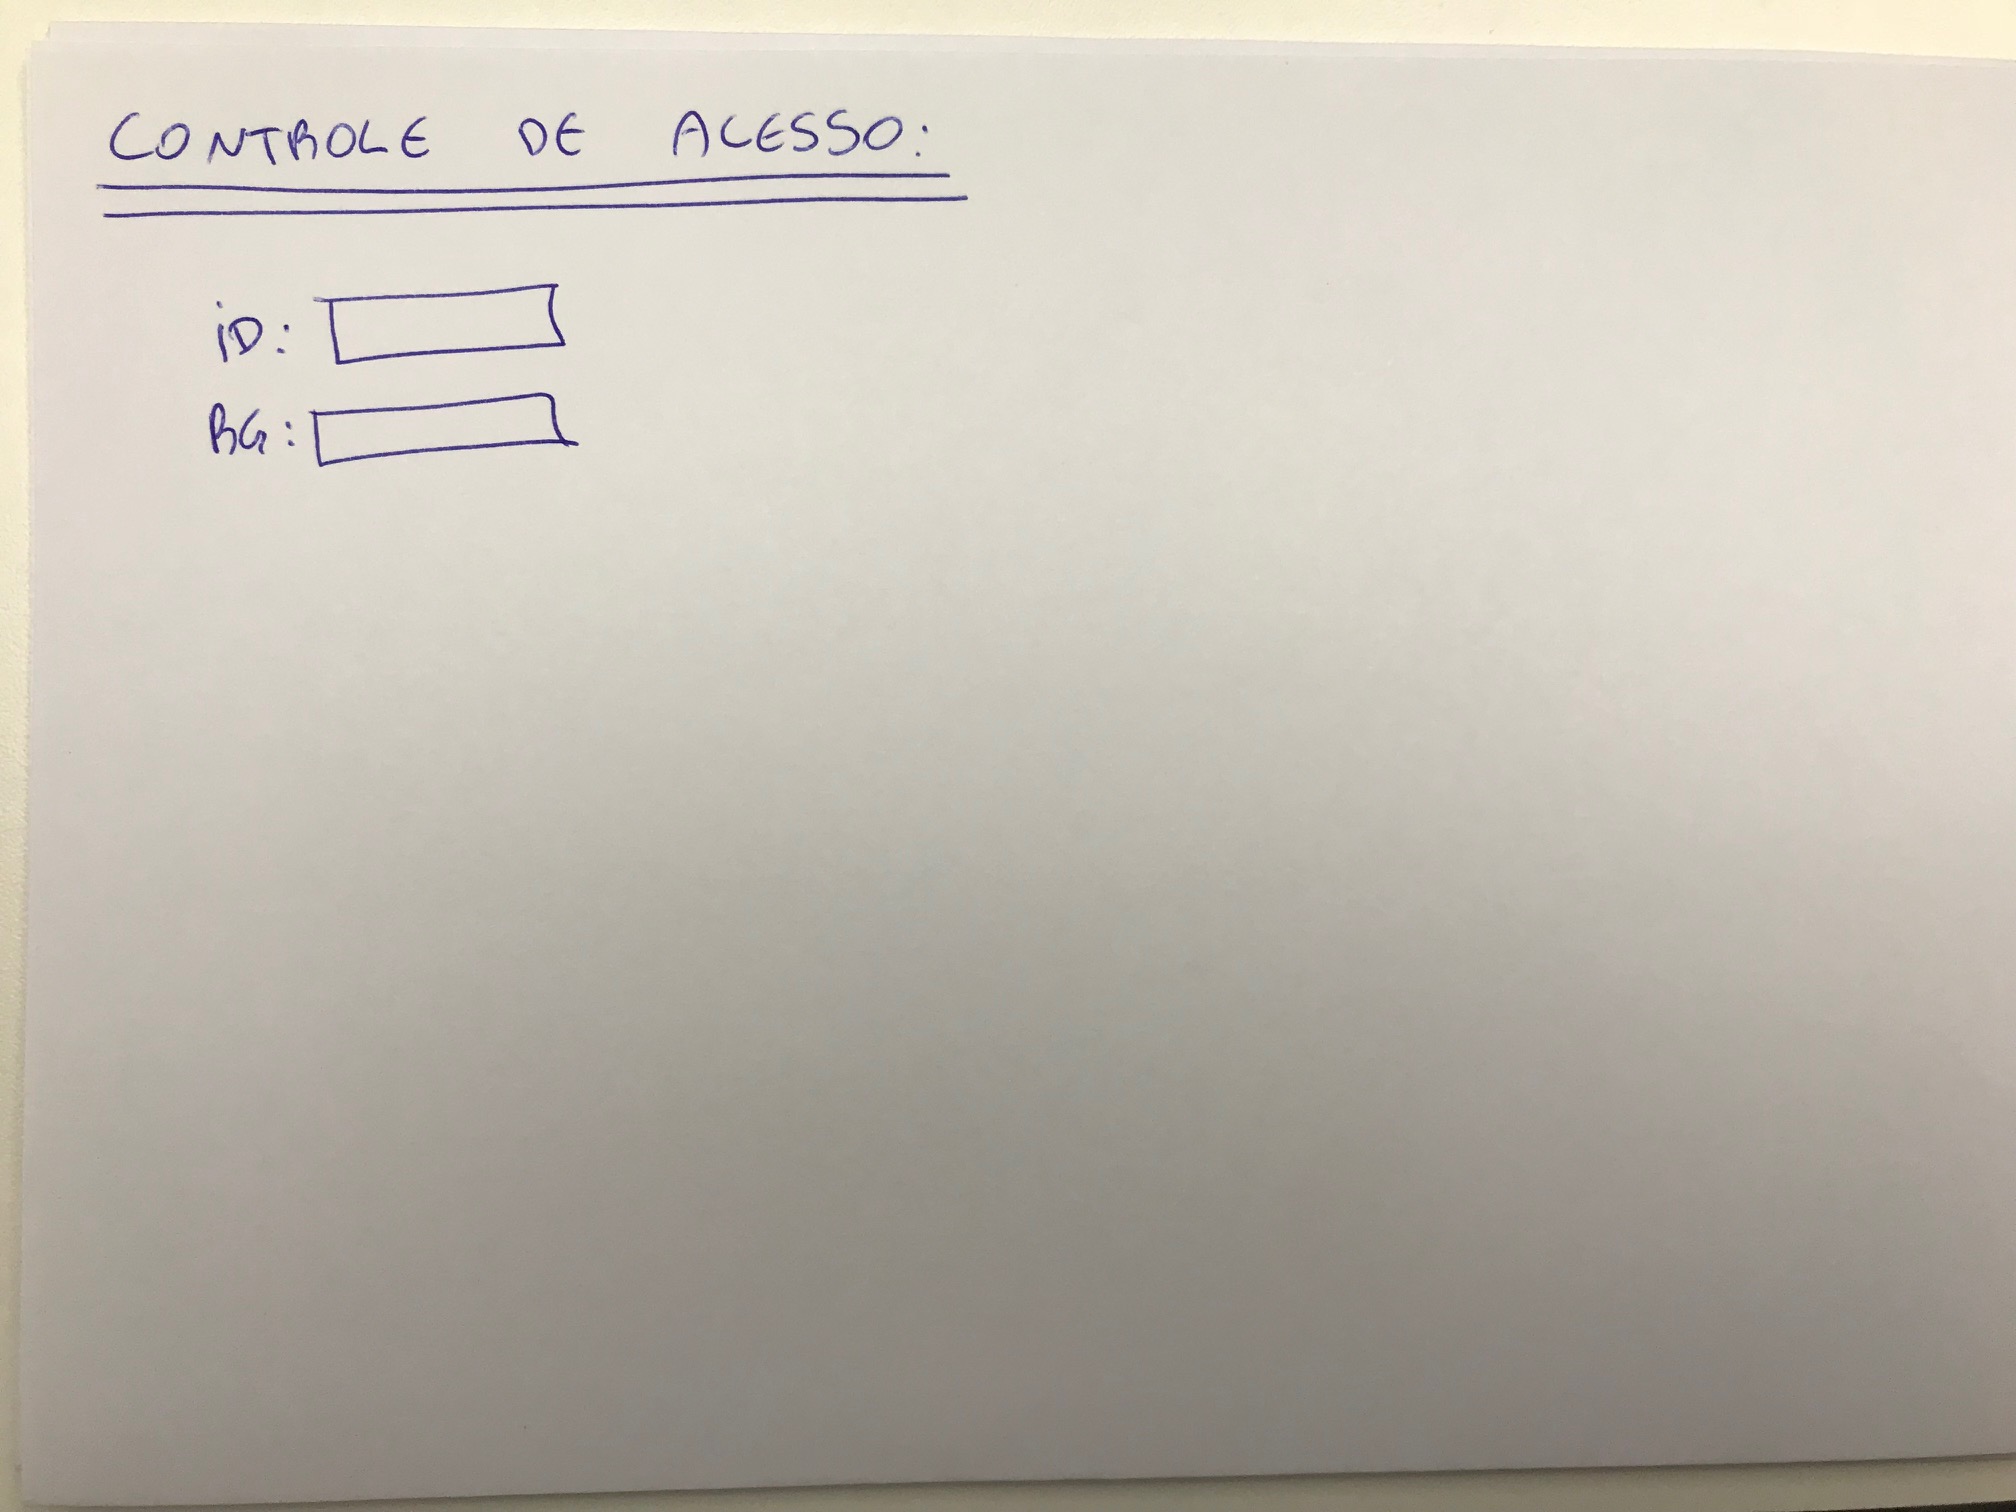 CONTROLE DE ACESSO:
iD:
RG: